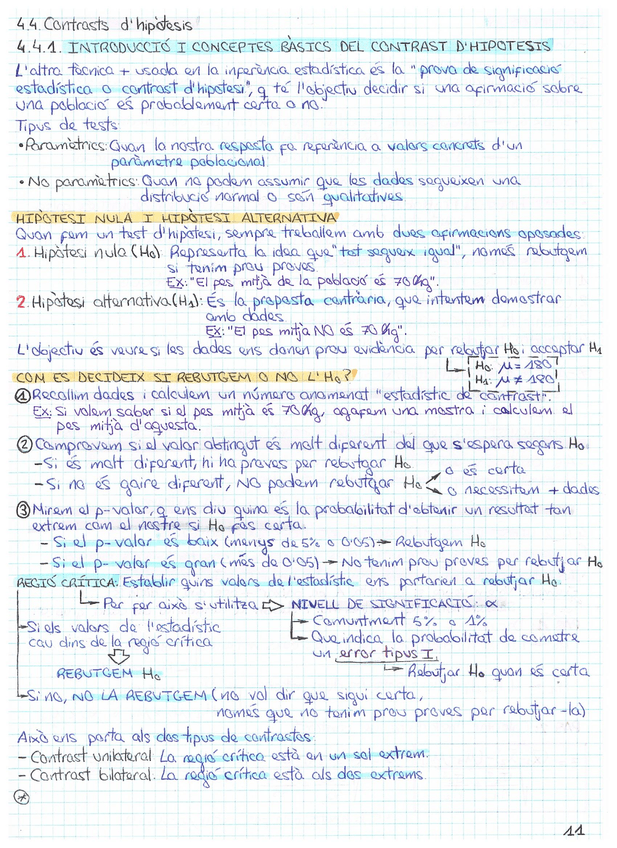 4.4. Contrasts d'hipòtesis
4.4.1. INTRODUCCIÓ I CONCEPTES BÀSICS DEL CONTRAST D'HIPOTESIS
L'altra tècnica + usada en la inferència estadística és la "prova de significació
estadística o contrast d'hipotesi", q té l'objectiu decidir si una afirmació sobre
una població és probablement certa o no.
Tipus de tests:
• Paramètrics: Quan la nostra resposta fa referència a valors concrets d'un
paràmetre poblacional.
• No paramètrics: Quan no podem assumir que les dades segueixen una
distribució normal o són qualitatives
HIPÒTESI NULA I HIPÒTESI ALTERNATIVA
Quan fem un test d'hipòtesi, sempre treballem amb dues afirmacions oposades:
1. Hipòtesi nula (H₀): Representa la idea que "tot segueix igual", només rebutgem
si tenim prou proves.
Ex: "El pes mitjà de la població és 70Kg".
2. Hipòtesi alternativa (H₁): És la proposta contrària, que intentem demostrar
amb dades
Ex: "El pes mitjà NO és 70Kg".
L'objectiu és veure si les dades ens donen prou evidència per rebutjar H₀ i acceptar H₁
H₀: μ = 180
H₁: μ ≠ 180
COM ES DECIDEIX SI REBUTGEM O NO L'H₀?
① Recollim dades i calculem un número anomenat "estadístic de contrast".
Ex: Si volem saber si el pes mitjà és 70Kg, agafem una mostra i calculem el
pes mitjà d'aquesta.
② Comprovem si el valor obtingut és molt diferent del que s'espera segons H₀
- Si és molt diferent, hi ha proves per rebutgar H₀
- Si no és gaire diferent, NO podem rebutgar H₀ o és certa
o necessitem + dades
③ Mirem el p-valor, q ens diu quina és la probabilitat d'obtenir un resultat tan
extrem com el nostre si H₀ fos certa.
- Si el p-valor és baix (menys de 5% o 0'05) → Rebutgem H₀
- Si el p-valor és gran (més de 0'05) → No tenim prou proves per rebutjar H₀
REGIÓ CRÍTICA: Establir quins valors de l'estadístic ens portarien a rebutjar H₀.
Per fer això s'utilitza ⇨ NIVELL DE SIGNIFICACIÓ: α
Comuntment 5% o 1%
Si els valors de l'estadístic
cau dins de la regió crítica
REBUTGEM H₀
Que indica la probabilitat de cometre
un error tipus I.
Rebutjar H₀ quan és certa
Si no, NO LA REBUTGEM (no vol dir que sigui certa,
només que no tenim prou proves per rebutjar-la)
Això ens porta als dos tipus de contrastos:
- Contrast unilateral: La regió crítica està en un sol extrem.
- Contrast bilateral: La regió crítica està als dos extrems
11